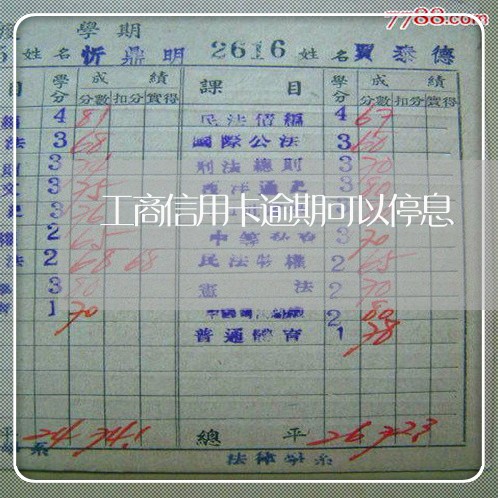 7788.com
學期
姓名 忻鼎明 2616 姓名 賈泰德
目 學分 成績 課目 學分 成績
分數 扣分 實得 分數 扣分 實得
4 81 民法債編 4 67
法 3 68 國際公法 3 60
3 刑法總則 3 70
3 75 3 80
工商信用卡逾期可以停息
2 65 3 70
法 2 68 68 民法物權 2 65
3 80 憲法 2 70
1 70 2 80
普通體育 1 78
平 24 74.1 總平 26 72.3
系 法律學系